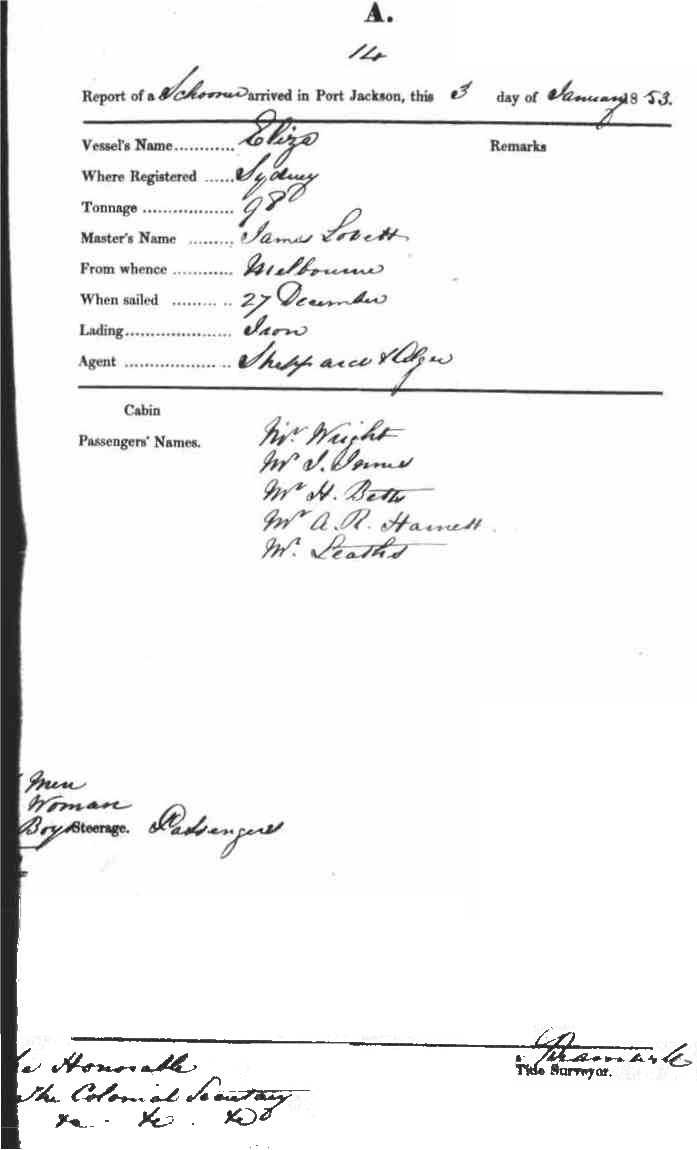 A.
14
Report of a Schooner arrived in Port Jackson, this 3 day of January 1853.
Vessel's Name............ Eliza Remarks
Where Registered ...... Sydney
Tonnage .................. 98
Master's Name ......... James Lovett
From whence ............ Melbourne
When sailed ......... .. 27 December
Lading..................... Iron
Agent .................. .. Sheppard & Alger
Cabin
Passengers' Names.
Mr. Wright
Mr J.
Mr H. Betts
Mr A. R. Harnett.
Mr.
Men
Woman
Boys Steerage. Passengers
Honorable
The Colonial Secretary
&c. &c. &c
Tide Surveyor.